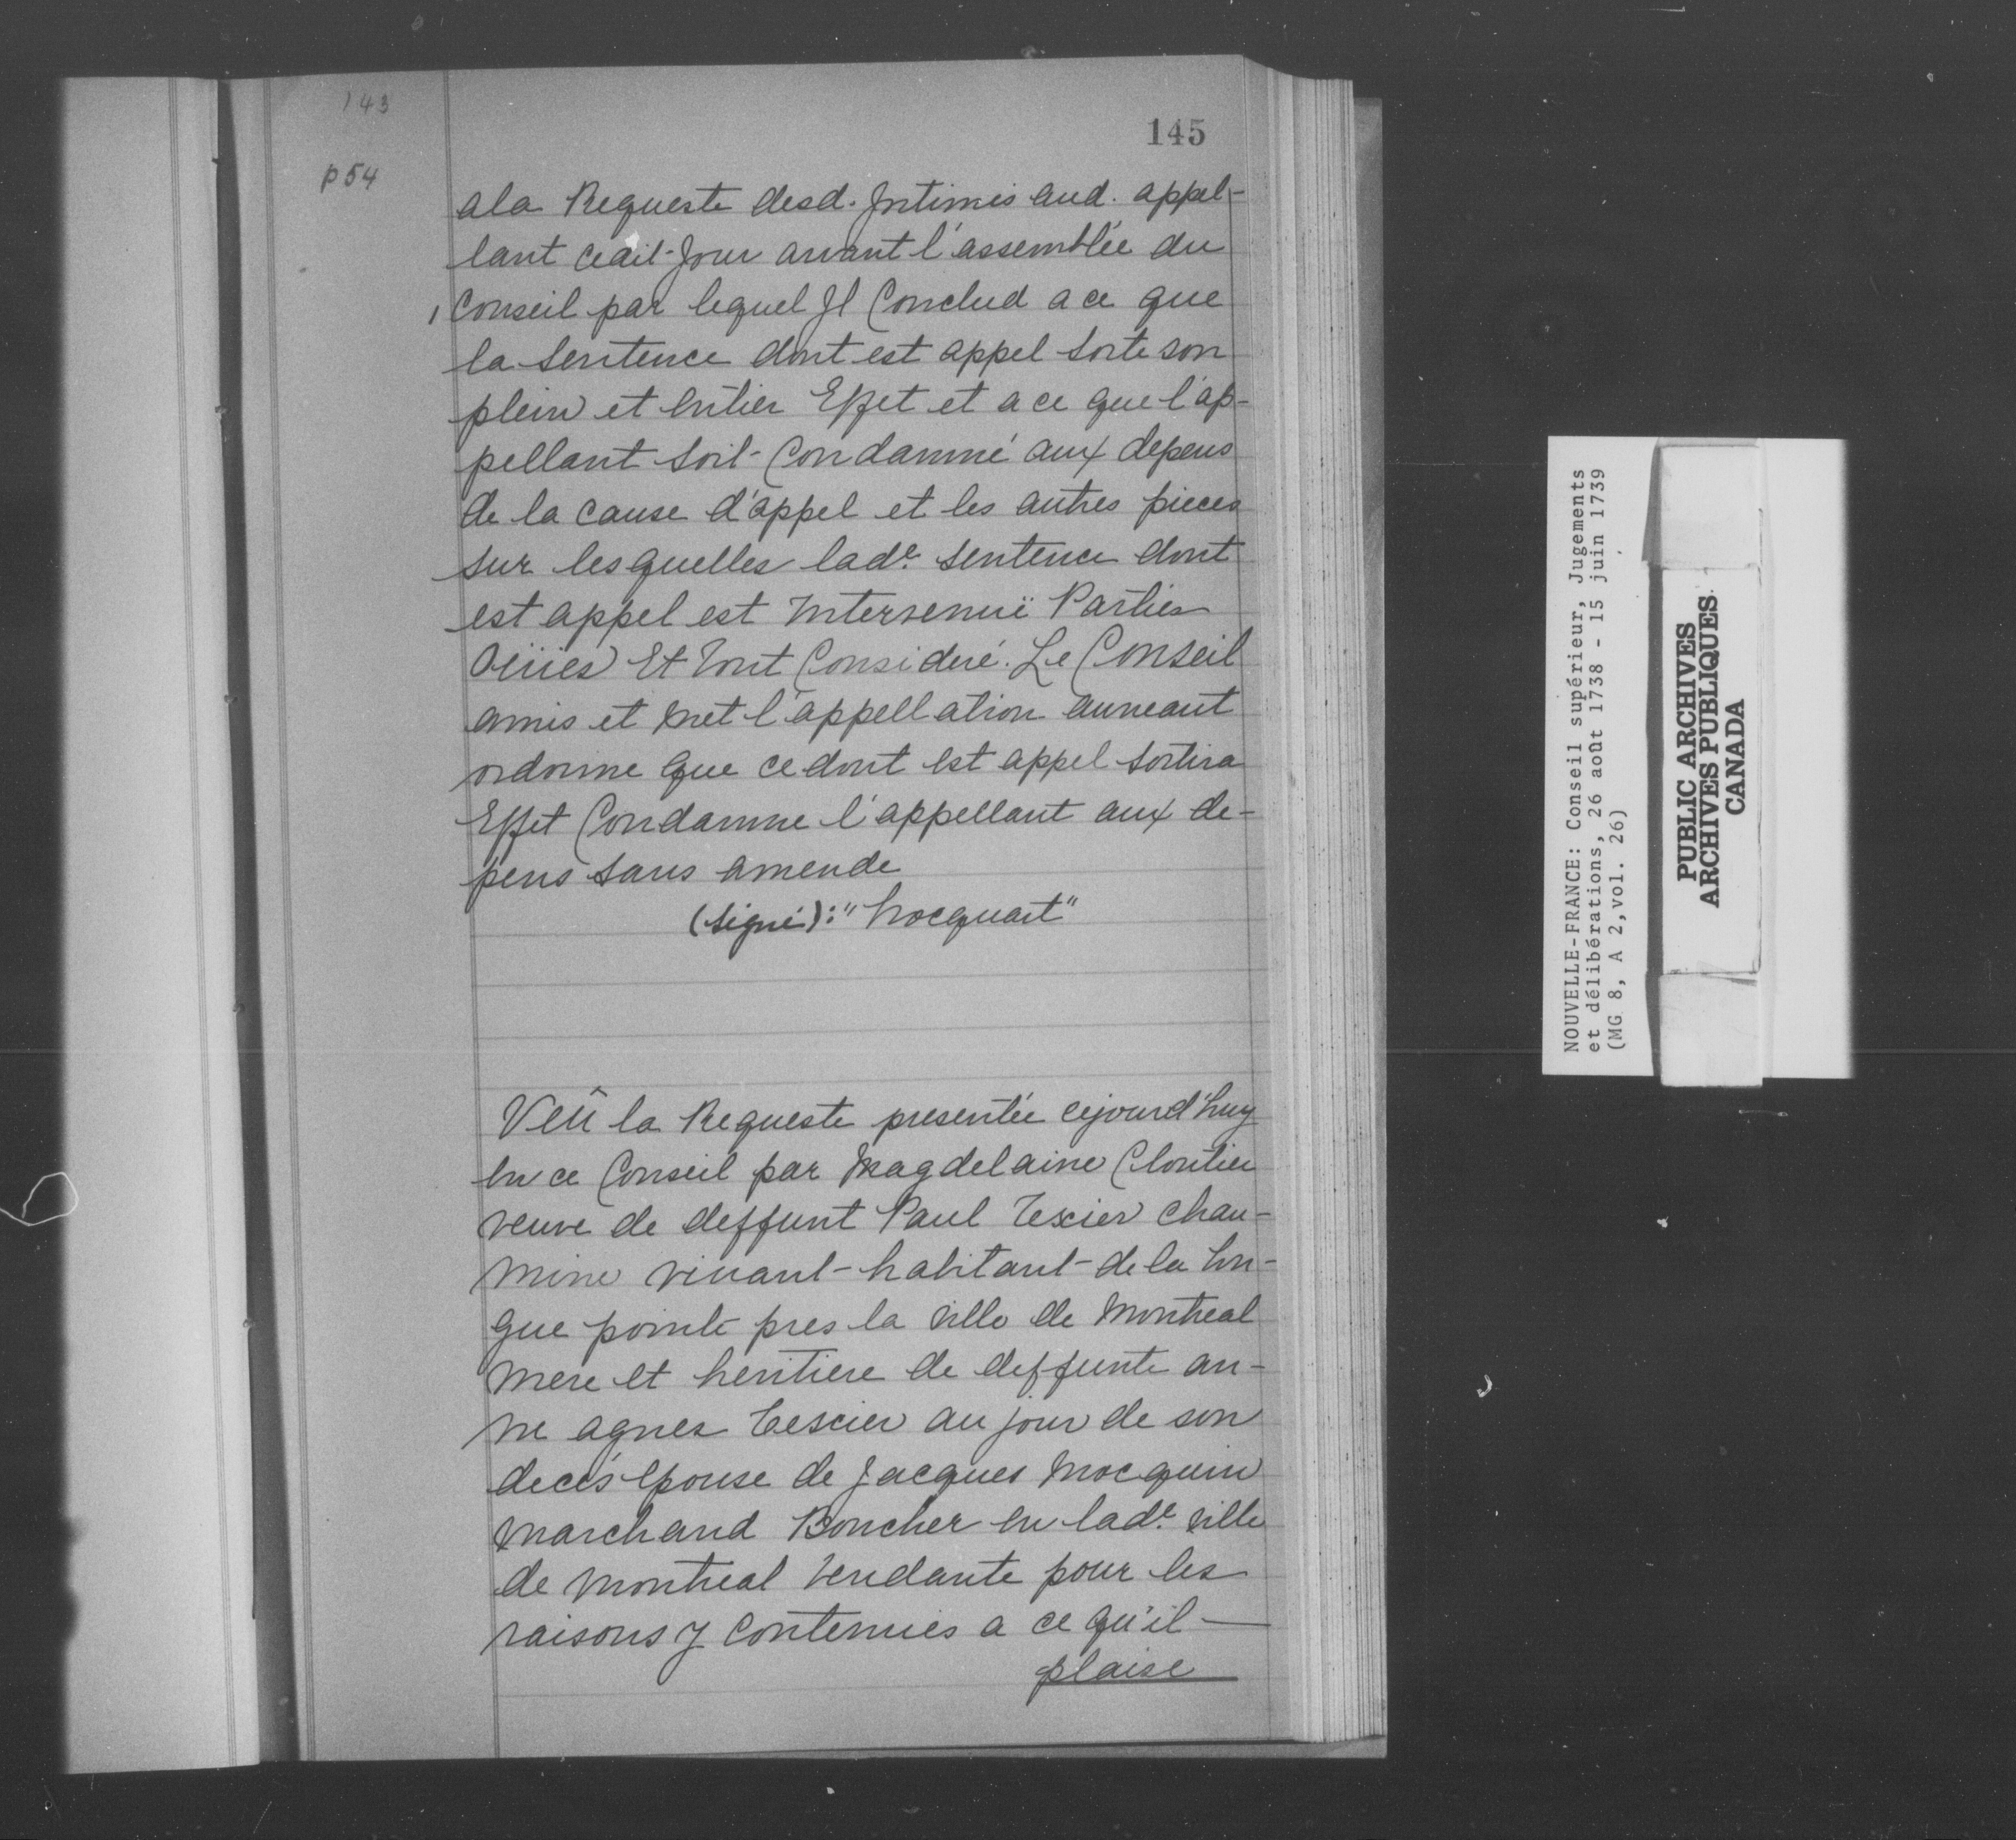 143
145
p 54
ala Requeste desd. Intimés aud. appel-
lant cedit Jour avant l'assemblée du
Conseil par lequel Il Conclud a ce que
la Sentence dont est appel sorte son
plein et entier Effet et a ce que l'ap-
pellant soit Condamné aux depens
de la cause d'appel et les autres pieces
sur lesquelles lade. sentence dont
est appel est Intervenuë Parties
Oüies Et tout Consideré. Le Conseil
amis et met l'appellation auneant
ordonne que ce dont est appel sortira
Effet Condamne l'appellant aux de-
pens sans amende
(signé): "hocquart"
Veû la Requeste presentée cejourd'huy
en ce Conseil par Magdelaine Cloutier
veuve de deffunt Paul Texier Chau-
mine vivant habitant de la lon-
gue pointe pres la ville de Montreal
mere et heritiere de deffunte an-
ne agnes Tescier au jour de son
decés epouse de Jacques Mocquin
Marchand Boucher en lade. ville
de Montreal tendante pour les
raisons y contenues a ce qu'il
plaise
NOUVELLE-FRANCE: Conseil supérieur, Jugements
et délibérations, 26 août 1738 - 15 juin 1739
(MG 8, A 2, vol. 26)
PUBLIC ARCHIVES
ARCHIVES PUBLIQUES
CANADA